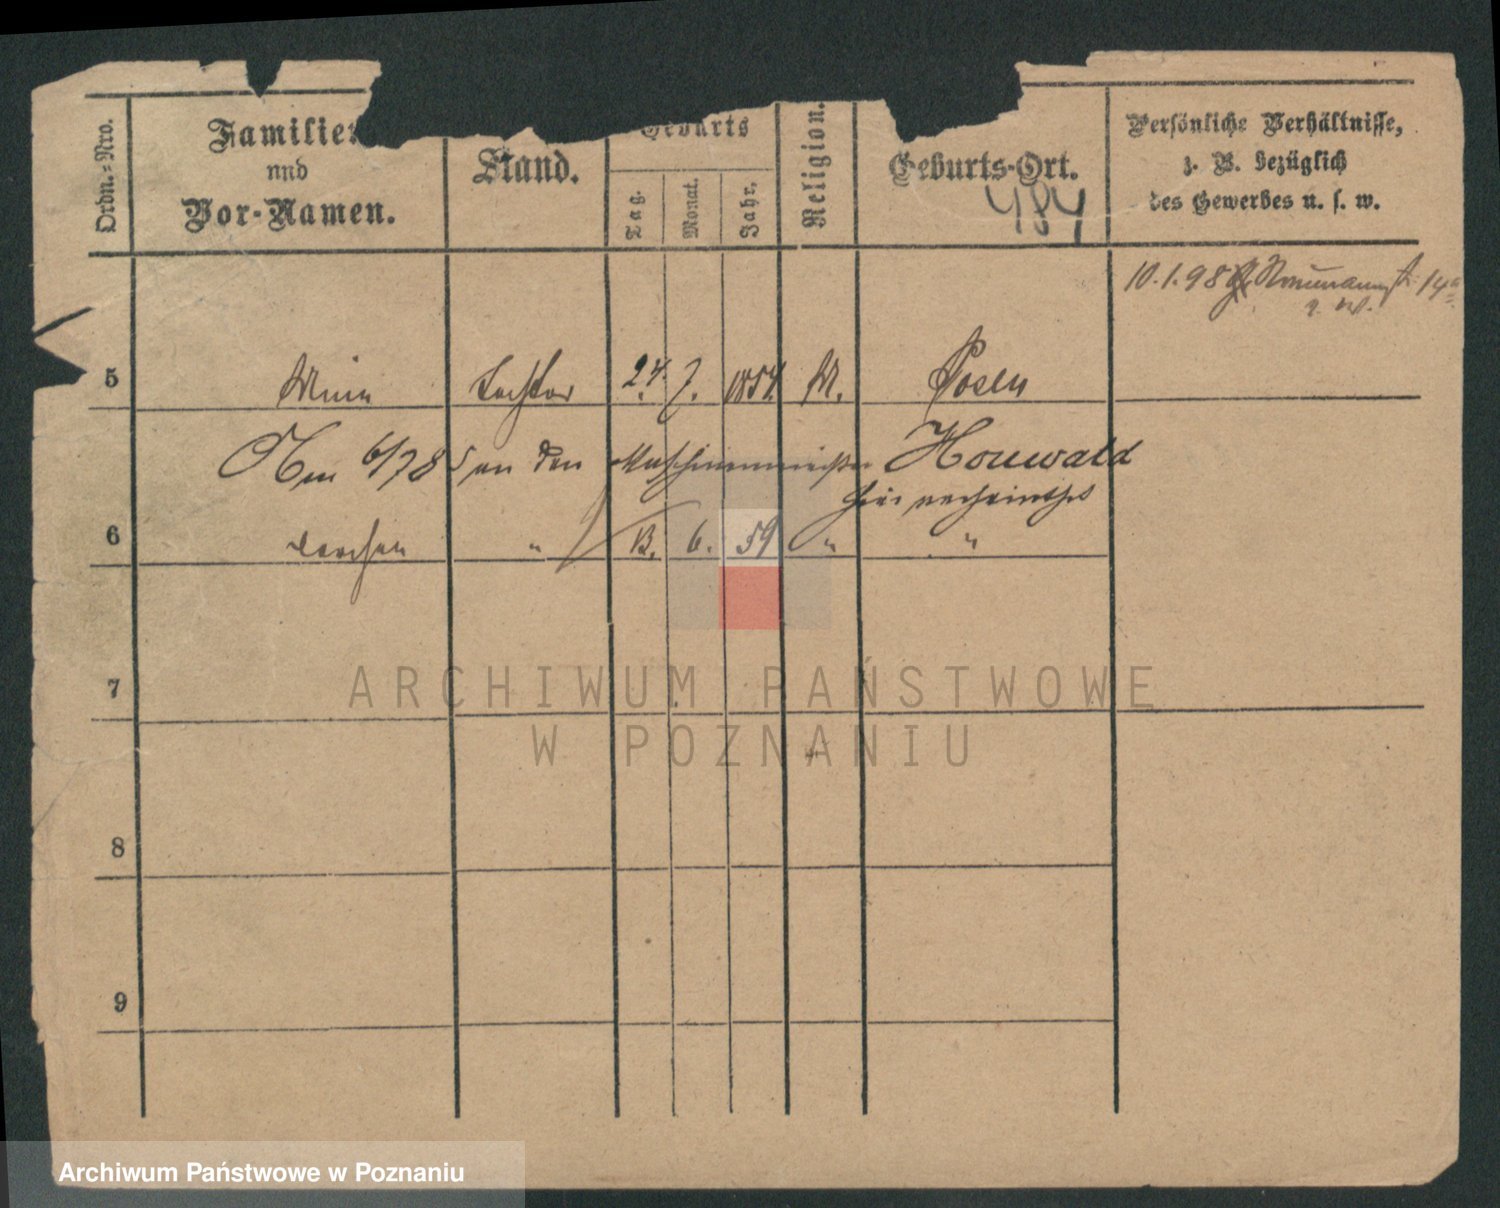 Ordn.-Nro.
Familien
und
Vor-Namen.
Stand.
Geburts
Tag.
Monat.
Jahr.
Religion.
Geburts-Ort.
484
Persönliche Verhältnisse,
z. B. bezüglich
des Gewerbes u. s. w.
10.1.98 Naumannstr. 14a
5 Tochter 24. 7. 1854. M. Posen
Am 6/78 an den Maschinenmeister Houwald
hier verheirathet
6 " B. 6. 59 " "
7
8
9
ARCHIWUM PAŃSTWOWE
W POZNANIU
Archiwum Państwowe w Poznaniu